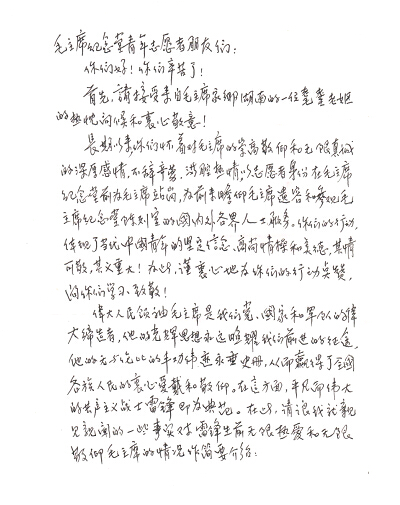 毛主席纪念堂青年志愿者朋友们：
你们好！你们辛苦了！
首先，請接受来自毛主席家鄉湖南的一位耄耋老嫗
的热忱问候和衷心敬意！
長期以来，你们怀着对毛主席的崇高敬仰和无限真诚
的深厚感情，不辞辛劳，满腔热情，以志愿者身份在毛主席
纪念堂前为毛主席站岗，为前来瞻仰毛主席遗容和参观毛
主席纪念堂陈列室的國内外各界人士服务。你们的行动，
体现了当代中國青年的坚定信念、高尚情操和美德，其情
可敬，其义重大！在此，谨衷心地为你们的行动点赞，
向你们学习、致敬！
偉大人民领袖毛主席是我们党、國家和军队的偉
大缔造者，他的光辉思想永远照耀我们前进的征途，
他的无与伦比的丰功伟业永垂史册，从而赢得了全國
各族人民的衷心爱戴和敬仰。在这方面，平凡而偉大
的共产主义战士雷锋即为典范。在此，请让我就亲
见親闻的一些事实对雷锋生前无限热爱和无限
敬仰毛主席的情况作简要介绍：